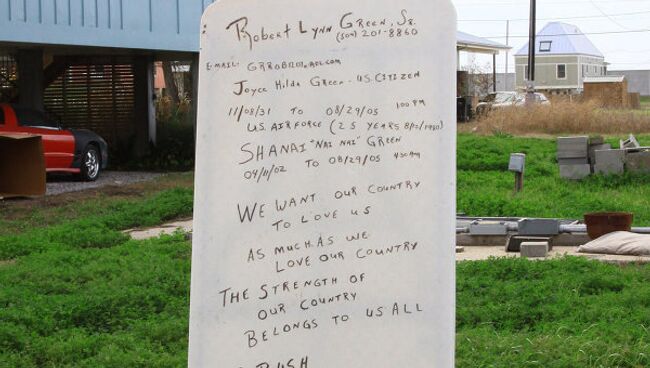 Robert Lynn Green, Sr.
(504) 201-8860
E-MAIL:
Joyce Hilda Green - U.S. CITIZEN
11/08/31 TO 08/29/05 1:00 PM
U.S. AIR FORCE (25 YEARS
SHANAI "NAI NAI" GREEN
TO 08/29/05 4:30 AM
WE WANT OUR COUNTRY
TO LOVE US
AS MUCH AS WE
LOVE OUR COUNTRY
THE STRENGTH OF
OUR COUNTRY
BELONGS TO US ALL
BUSH